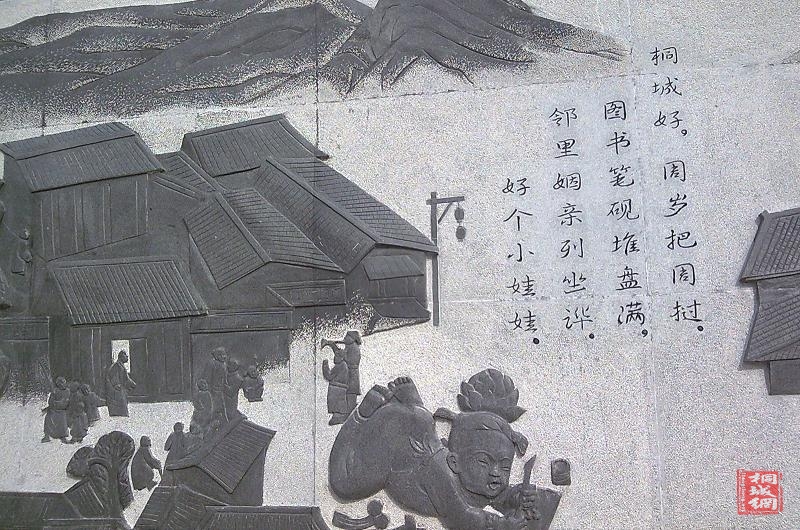 桐城好。周岁把周挝。
图书笔砚堆盘满，
邻里姻亲列坐哗。
好个小娃娃。
桐城网